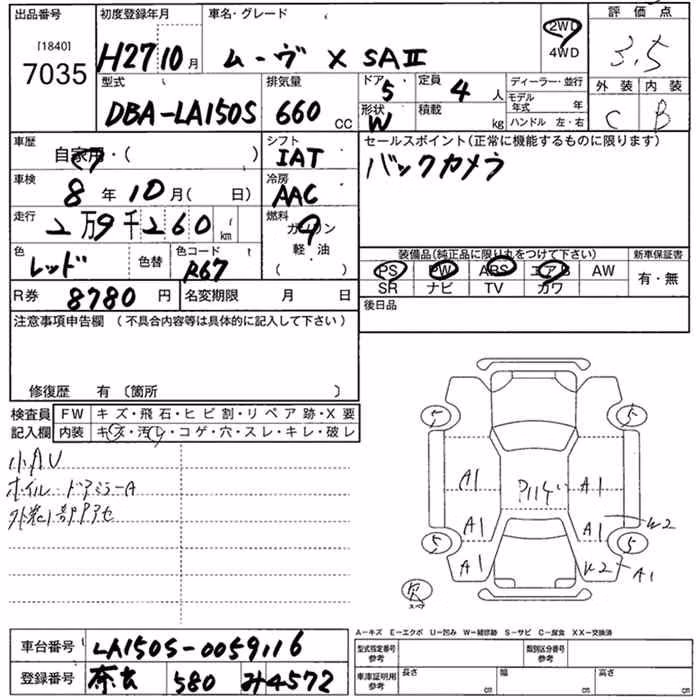 出品番号 初度登録年月 車名・グレード 評価点
[1840] 7035
H27 10月 ムーヴ X SAII 2WD 4WD 3.5
型式 排気量 ドア 定員 ディーラー・並行 外装 内装
DBA-LA150S 660 CC 5 4人 モデル年式 年 C B
形状 W 積載 kg ハンドル 左・右
車歴 自家用・( ) シフト IAT セールスポイント(正常に機能するものに限ります)
車検 8年10月( 日) 冷房 AAC バックカメラ
走行 2万9千260 km 燃料 ガソリン 軽・油 ( )
色 レッド 色替 色コード R67 装備品(純正品に限り丸をつけて下さい) 新車保証書
PS PW ABS エアB AW 有・無
SR ナビ TV カワ
R券 8780円 名変期限 月 日 後日品
注意事項申告欄 (不具合内容等は具体的に記入して下さい)
修復歴 有 〔箇所 〕
検査員 FW キズ・飛石・ヒビ割・リペア跡・X要
記入欄 内装 キズ・汚レ・コゲ・穴・スレ・キレ・破レ
小AU
ホイル ドアミラーA
5 5
A1 A1
A1 A1 W2
5 5
A1 W2 A1
欠 スペア
A-キズ E-エクボ U-凹み W-補修跡 S-サビ C-腐食 XX-交換済
車台番号 LA150S-0059116 型式指定番号 参考 類別区分番号 参考
登録番号 奈良 580 み 4572 車庫証明用 参考 長さ cm 幅 cm 高さ cm